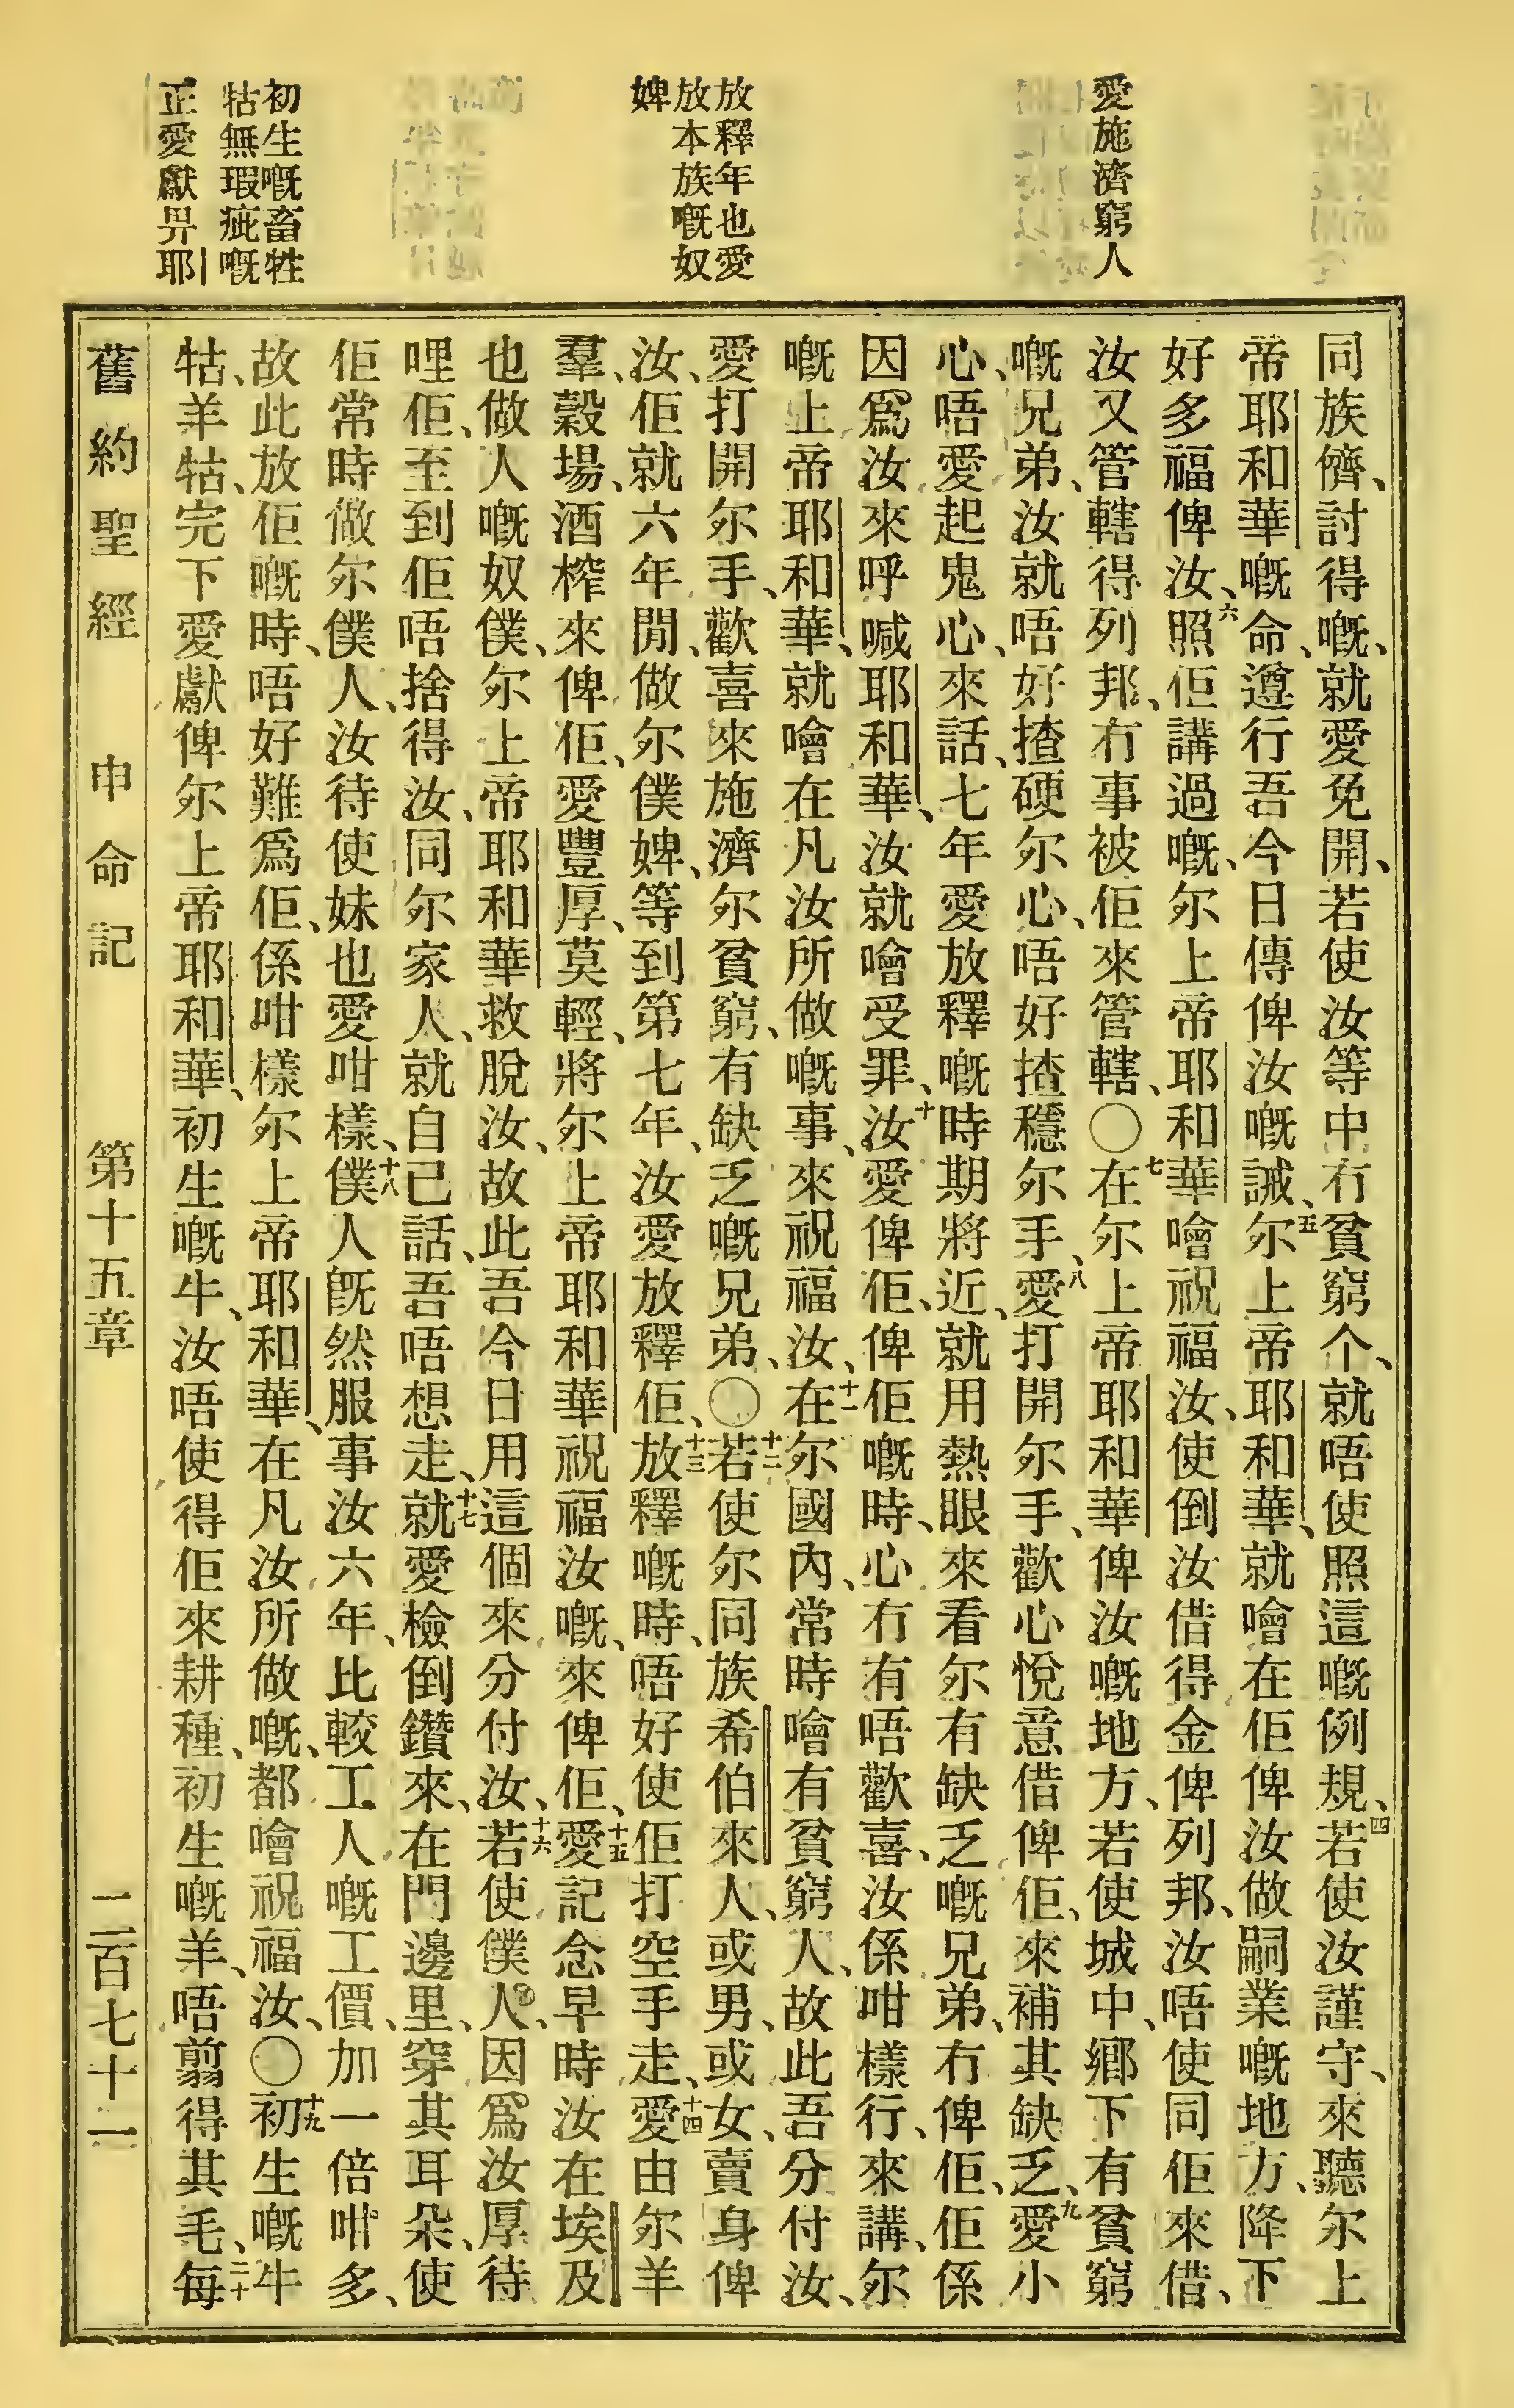 愛施濟窮人
放釋年也愛
放本族嘅奴
婢
初生嘅畜牲
牯無瑕疵嘅
正愛獻畀耶
同族儕、討得嘅、就愛免開、若使汝等中冇貧窮个、就唔使照這嘅例規、四若使汝謹守、來聽尔上
帝耶和華嘅命、遵行吾今日傳俾汝嘅誡、五尔上帝耶和華、就噲在佢俾汝做嗣業嘅地方、降下
好多福俾汝、六照佢講過嘅、尔上帝耶和華噲祝福汝、使倒汝借得金俾列邦、汝唔使同佢來借、
汝又管轄得列邦、冇事被佢來管轄、〇七在尔上帝耶和華俾汝嘅地方、若使城中、鄉下有貧窮
嘅兄弟、汝就唔好揸硬尔心、唔好揸穩尔手、八愛打開尔手、歡心悅意借俾佢、來補其缺乏、九愛小
心、唔愛起鬼心、來話、七年愛放釋嘅時期將近、就用熱眼來看尔有缺乏嘅兄弟、冇俾佢、佢係
因爲汝來呼喊耶和華、汝就噲受罪、十汝愛俾佢、俾佢嘅時、心冇有唔歡喜、汝係咁樣行、來講、尔
嘅上帝耶和華、就噲在凡汝所做嘅事、來祝福汝、十一在尔國內、常時噲有貧窮人、故此吾分付汝、
愛打開尔手、歡喜來施濟尔貧窮、有缺乏嘅兄弟、〇十二若使尔同族希伯來人、或男、或女、賣身俾
汝、佢就六年間、做尔僕婢、等到第七年、汝愛放釋佢、十三放釋嘅時、唔好使佢打空手走、十四愛由尔羊
羣、穀場、酒榨來俾佢、愛豐厚、莫輕、將尔上帝耶和華祝福汝嘅、來俾佢、十五愛記念早時汝在埃及
也做人嘅奴僕、尔上帝耶和華救脫汝、故此吾今日用這個來分付汝、十六若使僕人、因爲汝厚待
哩佢、至到佢唔捨得汝、同尔家人、就自己話、吾唔想走、十七就愛檢倒鑽來、在門邊里、穿其耳朵、使
佢常時做尔僕人、汝待使妹也愛咁樣、十八僕人旣然服事汝六年、比較工人嘅工價、加一倍咁多、
故此放佢嘅時、唔好難爲佢、係咁樣尔上帝耶和華、在凡汝所做嘅、都噲祝福汝、〇十九初生嘅牛
牯、羊牯、完下愛獻俾尔上帝耶和華、初生嘅牛、汝唔使得佢來耕種、初生嘅羊、唔翦得其毛、二十每
舊約聖經　申命記　第十五章　二百七十二